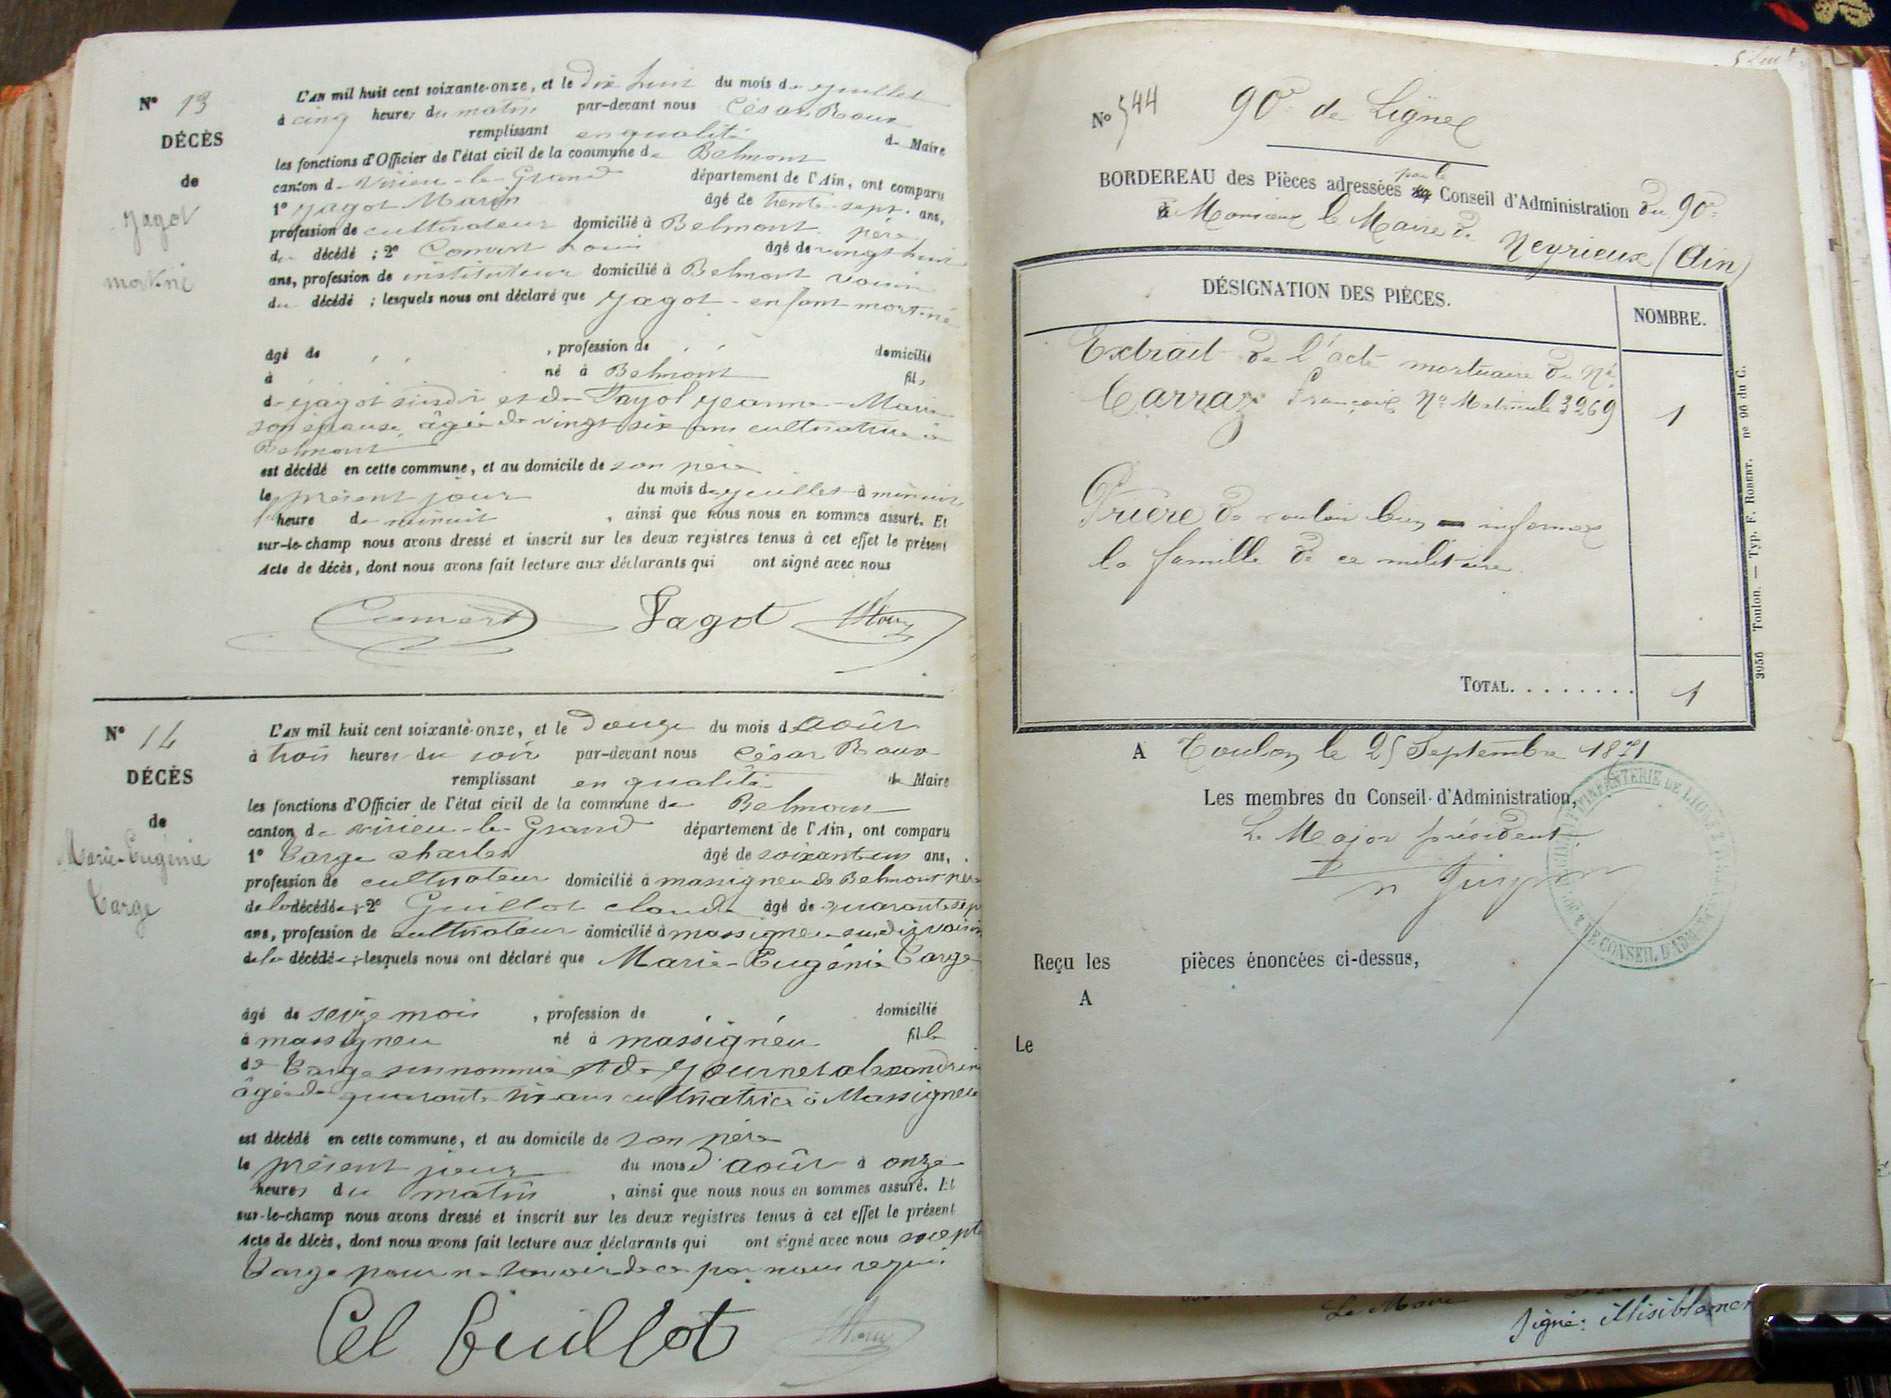 N° 13
DÉCÈS
de
Jagot
mort-né
L'AN mil huit cent soixante-onze, et le dix huit du mois de juillet
à cinq heures du matin par-devant nous César Roux
remplissant en qualité de Maire
les fonctions d'Officier de l'état civil de la commune de Belmont
canton de Virieu-le-Grand département de l'Ain, ont comparu
1° Jagot Marin âgé de trente-sept ans,
profession de cultivateur domicilié à Belmont père
du décédé ; 2° Convert Louis âgé de vingt huit
ans, profession de instituteur domicilié à Belmont voisin
du décédé ; lesquels nous ont déclaré que Jagot enfant mort-né
âgé de , profession de domicilié
à né à Belmont fils
de Jagot susdit et de Fayol Jeanne-Marie
son épouse, âgée de vingt six ans cultivatrice à
Belmont
est décédé en cette commune, et au domicile de son père
le présent jour du mois de juillet à minuit
heure de minuit , ainsi que nous nous en sommes assuré. Et
sur-le-champ nous avons dressé et inscrit sur les deux registres tenus à cet effet le présent
Acte de décès, dont nous avons fait lecture aux déclarants qui ont signé avec nous
Convert Jagot Roux
N° 14
DÉCÈS
de
Marie-Eugénie
Targe
L'AN mil huit cent soixante-onze, et le douze du mois d'août
à trois heures du soir par-devant nous César Roux
remplissant en qualité de Maire
les fonctions d'Officier de l'état civil de la commune de Belmont
canton de Virieu-le-Grand département de l'Ain, ont comparu
1° Targe charles âgé de soixante un ans,
profession de cultivateur domicilié à massigneu de Belmont père
de la décédée ; 2° Guillot claude âgé de quarante sept
ans, profession de cultivateur domicilié à massigneu susdit voisin
de la décédée ; lesquels nous ont déclaré que Marie-Eugénie Targe
âgé de seize mois , profession de domicilié
à massigneu né à massigneu fille
de Targe susnommé et de Journet alexandrine
âgée de quarante ans cultivatrice à Massigneu
est décédé en cette commune, et au domicile de son père
le présent jour du mois d'août à onze
heures du matin , ainsi que nous nous en sommes assuré. Et
sur-le-champ nous avons dressé et inscrit sur les deux registres tenus à cet effet le présent
Acte de décès, dont nous avons fait lecture aux déclarants qui ont signé avec nous excepté
Targe pour ne savoir de ce par nous requis
Cel Guillot Roux
N° 544 90e de Ligne
BORDEREAU des Pièces adressées par le Conseil d'Administration du 90e
à Monsieur le Maire de Neyrieux (Ain)
DÉSIGNATION DES PIÈCES. NOMBRE.
Extrait de l'acte mortuaire du Né
Carraz François No Matricule 3269 1
Prière de vouloir bien informer
la famille de ce militaire
TOTAL. . . . . . . . 1
3956 Toulon. — Typ. F. ROBERT. n° 96 du C.
A Toulon le 25 Septembre 1871
Les membres du Conseil d'Administration,
Le Major président
Reçu les pièces énoncées ci-dessus,
A
Le
D'INFANTERIE DE LIGNE
LE CONSEIL D'ADM
Le Maire
Signé: illisiblement